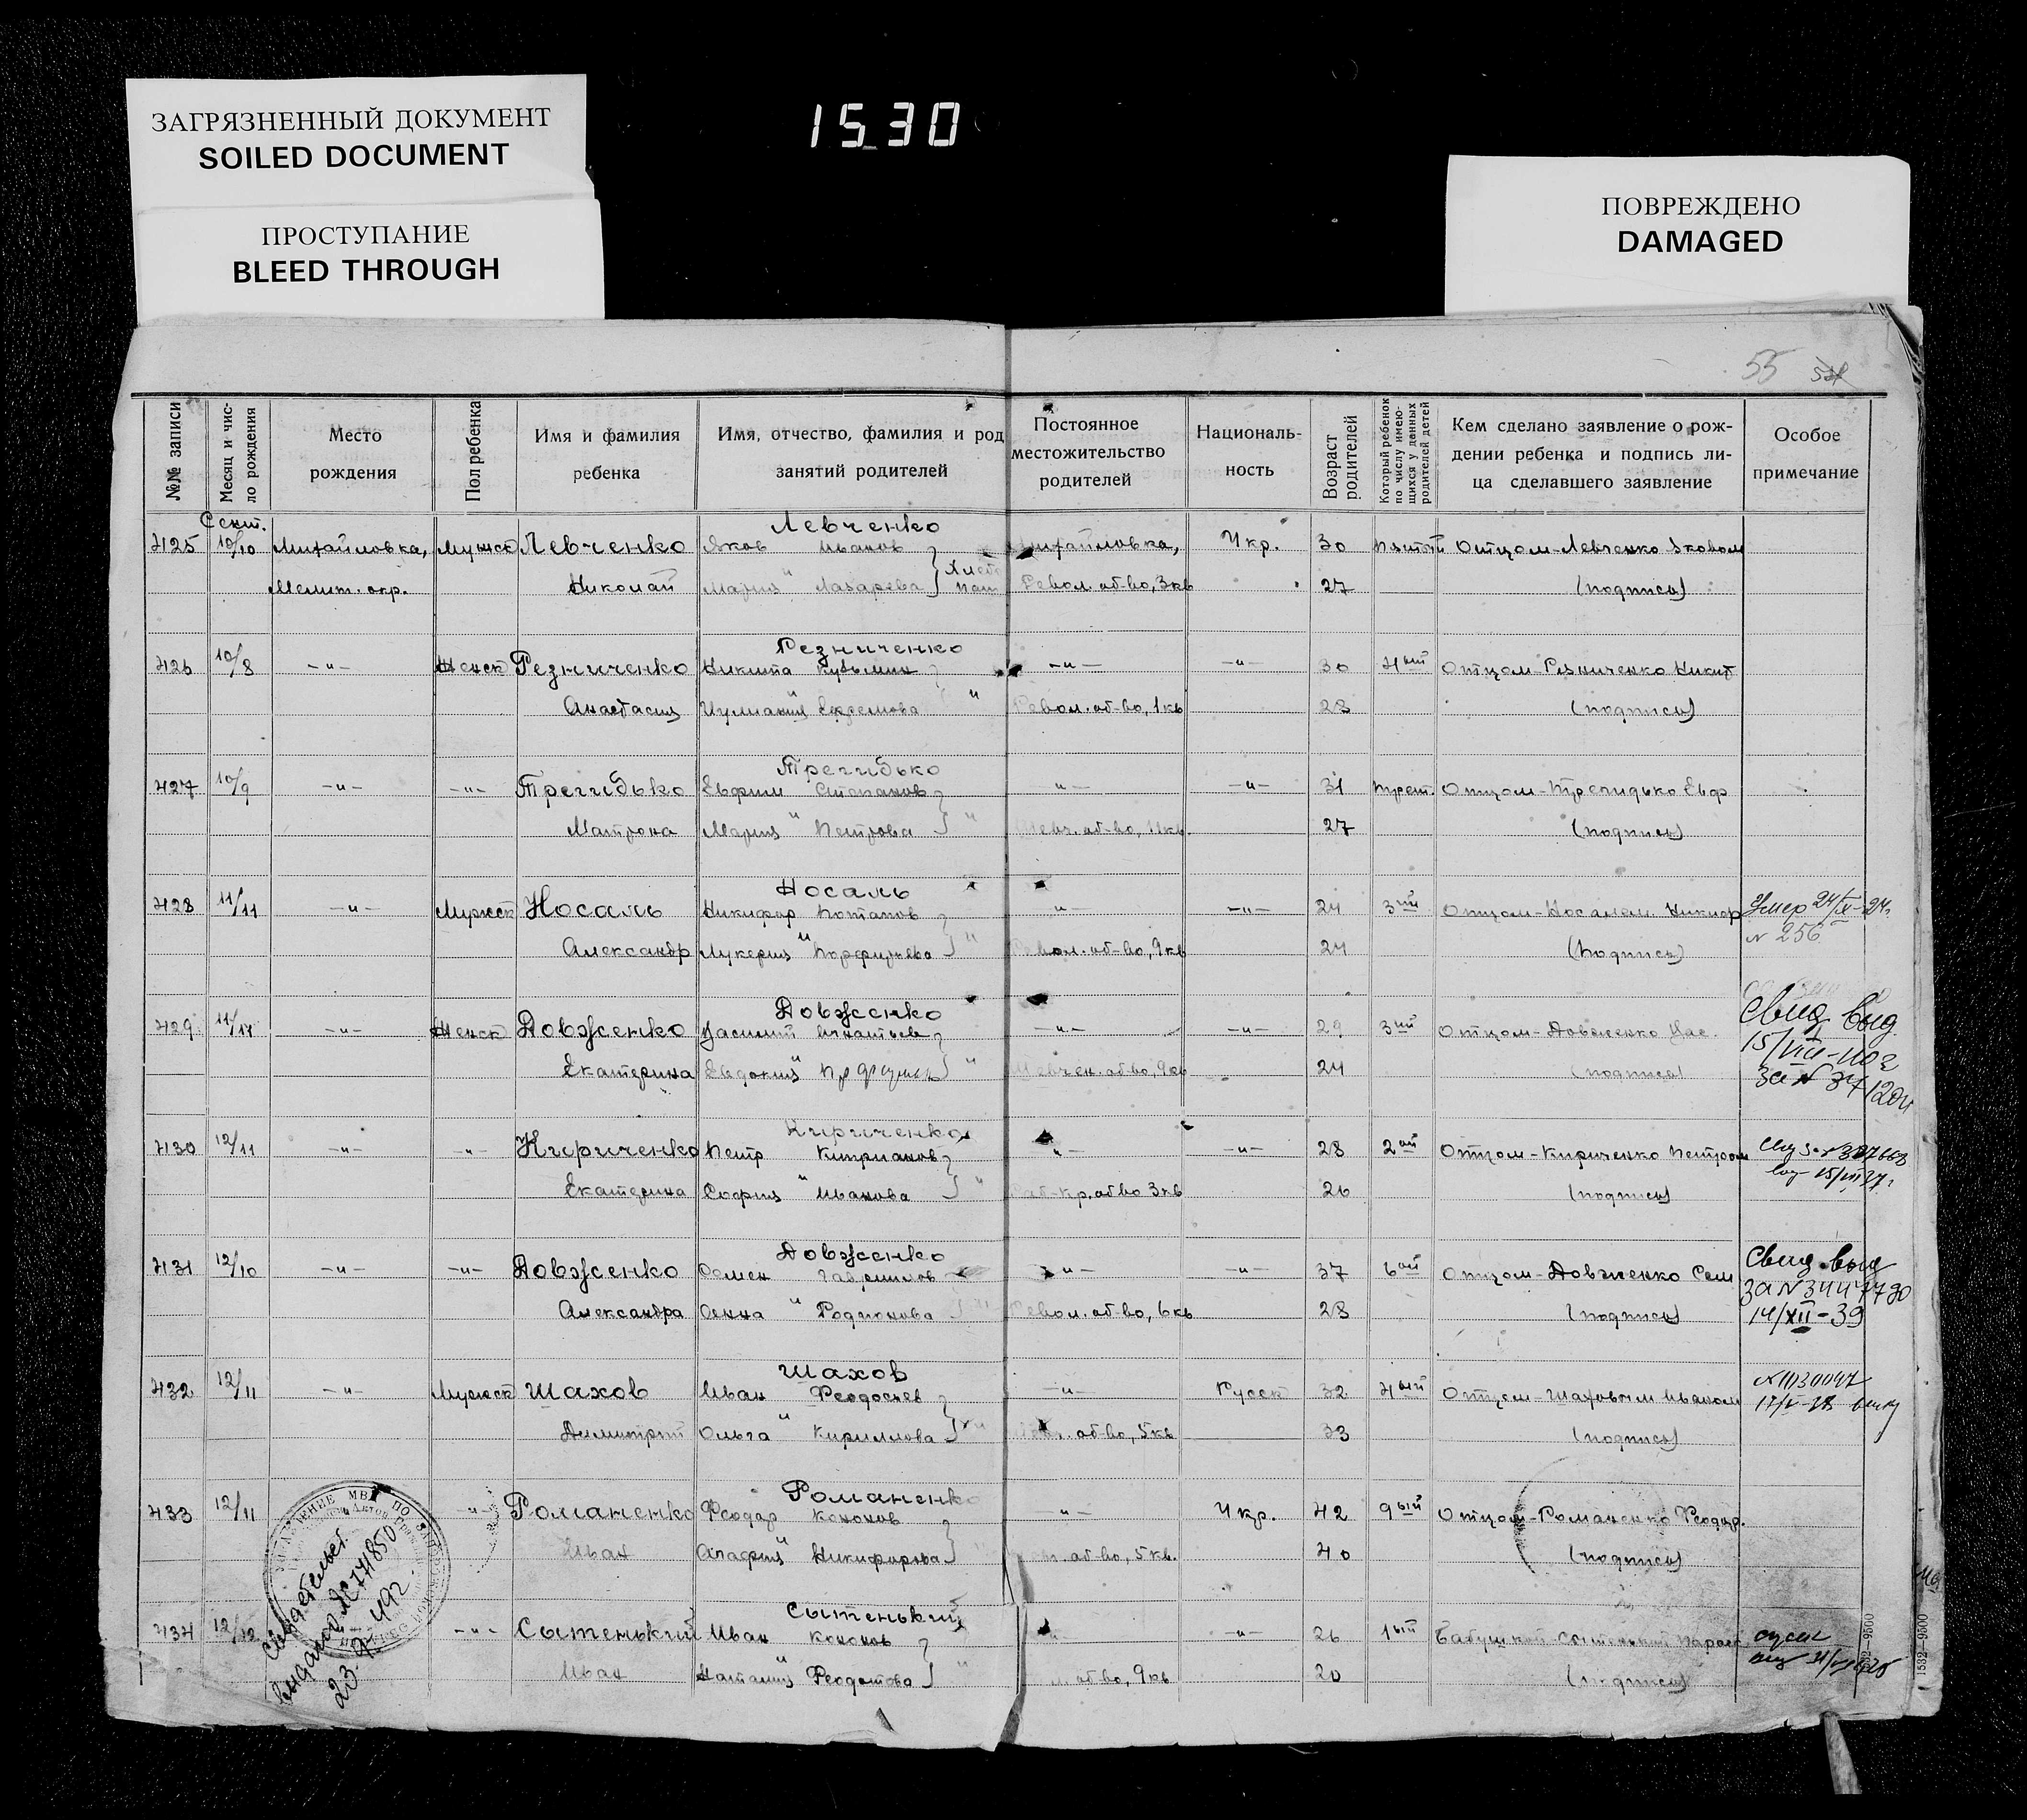 ЗАГРЯЗНЕННЫЙ ДОКУМЕНТ
SOILED DOCUMENT
ПРОСТУПАНИЕ
BLEED THROUGH
15.30
ПОВРЕЖДЕНО
DAMAGED
55
№№ записи
Месяц и чис-
ло рождения
Место
рождения
Пол ребенка
Имя и фамилия
ребенка
Имя, отчество, фамилия и род
занятий родителей
Постоянное
местожительство
родителей
Националь-
ность
Возраст
родителей
Который ребенок
по числу имею-
щихся у данных
родителей детей
Кем сделано заявление о рож-
дении ребенка и подпись ли-
ца сделавшего заявление
Особое
примечание
Сент. Левченко
425 10/10 Михайловка, Мужск Левченко Яков Иванов Михайловка, Укр. 30 пятый Отцом-Левченко Яковом
Мелит. окр. Николай Мария " Лазарева Револ. об-во, 3 кв 27 (подпись)
Резниченко
426 10/8 -"- Женск Резниченко Никита Кузьмин -"- -"- 30 4ый Отцом-Резниченко Никит
Анастасия Иулиания Ефремова " Револ. об-во, 1 кв 28 (подпись)
Трегидько
427 10/9 -"- -"- Трегидько Евфим Степанов -"- -"- 31 трет. Отцом-Трегидько Евф
Матрона Мария " Петрова " об-во, 11 кв. 27 (подпись)
Носаль
428 11/11 -"- Мужск Носаль Никифор Потапов -"- -"- 24 3ий Отцом-Носалем Никиф Умер 24/IX-24г.
Александр Лукерия " Порфирьева " Револ. об-во, 9 кв 24 (подпись) № 256
Довженко
429 11/14 -"- Женск Довженко Игнатьев -"- -"- 29 3ий Отцом-Довженко Свид Выд
Екатерина Евдокия " " Шевчен. об-во, 9 кв 24 (подпись) 15/VIII-40г
за №
Кириченко
430 12/11 -"- -"- Кириченко Петр Киприанов -"- -"- 28 2ой Отцом-Кириченко Петром
Екатерина София " Иванова " об-во 3 кв 26 (подпись)
Довженко
431 12/10 -"- -"- Довженко Семен Гавриилов -"- -"- 37 6ой Отцом-Довженко Сем Свид. выд
Александра Анна " Родионова " Револ. об-во, 6 кв 28 (подпись) за №
14/XII-39
Шахов
432 12/11 -"- Мужск Шахов Иван Феодосиев -"- Русск 32 4ый Отцом-Шаховым Иваном
Димитрий Ольга " Кириллова об-во, 5 кв 33 (подпись)
Романенко
433 12/11 -"- Романенко Феодор Кононов -"- Укр. 42 9ый Отцом-Романенко Феодор.
Иван Агафия " Никифорова об-во, 5 кв. 40 (подпись)
Сытенький
434 12/12 -"- Сытенький Иван Кононов -"- 26 1ый Бабушкой Сытенькой Параск
Иван Наталия " Феодотова " об-во, 9 кв 20 (подпись)
Свидетельст.
выдано
1532—9500